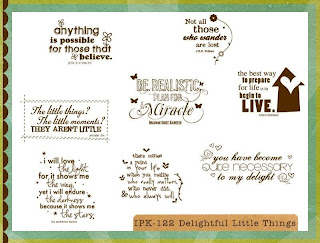 anything
is possible
for those that
believe.
Not all
those
who wander
are lost
BE REALISTIC
PLAN FOR A
Miracle
BHAGWAN SHREE RAJNEESH
the best way
to prepare
for life is to
begin to
LIVE.
The little things?
The little moments?
THEY AREN'T LITTLE
i will love
the light
for it shows me
the way,
yet i will endure
the darkness
because it shows me
the stars
there comes
a point
in your life
when you realize
who really matters,
who never did,
& who always will
you have become
QUITE NECESSARY
to my delight
IPK-122 Delightful Little Things